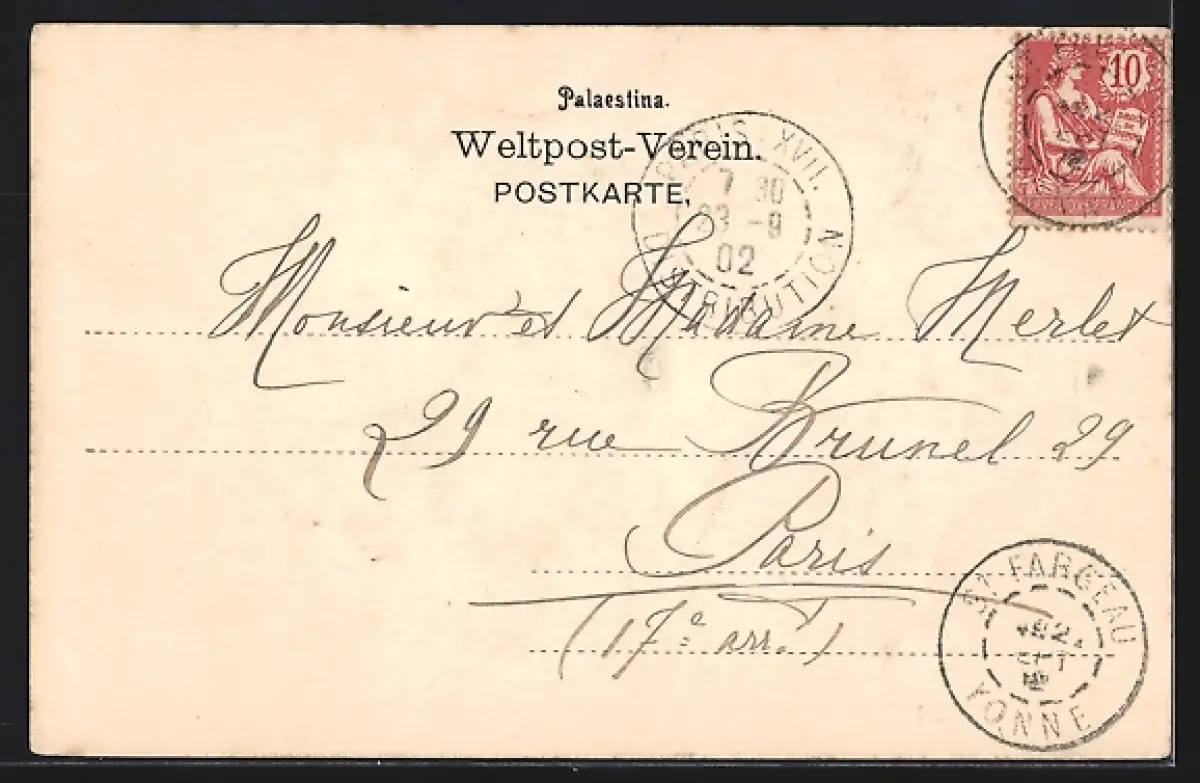 Palaestina.
Weltpost-Verein.
POSTKARTE.
10
PARIS XVII.
7 30
23 -9
02
DISTRIBUTION
Monsieur et Madame Merlet
29 rue Brunel 29
Paris
(17e arr.)
ST FARGEAU
YONNE